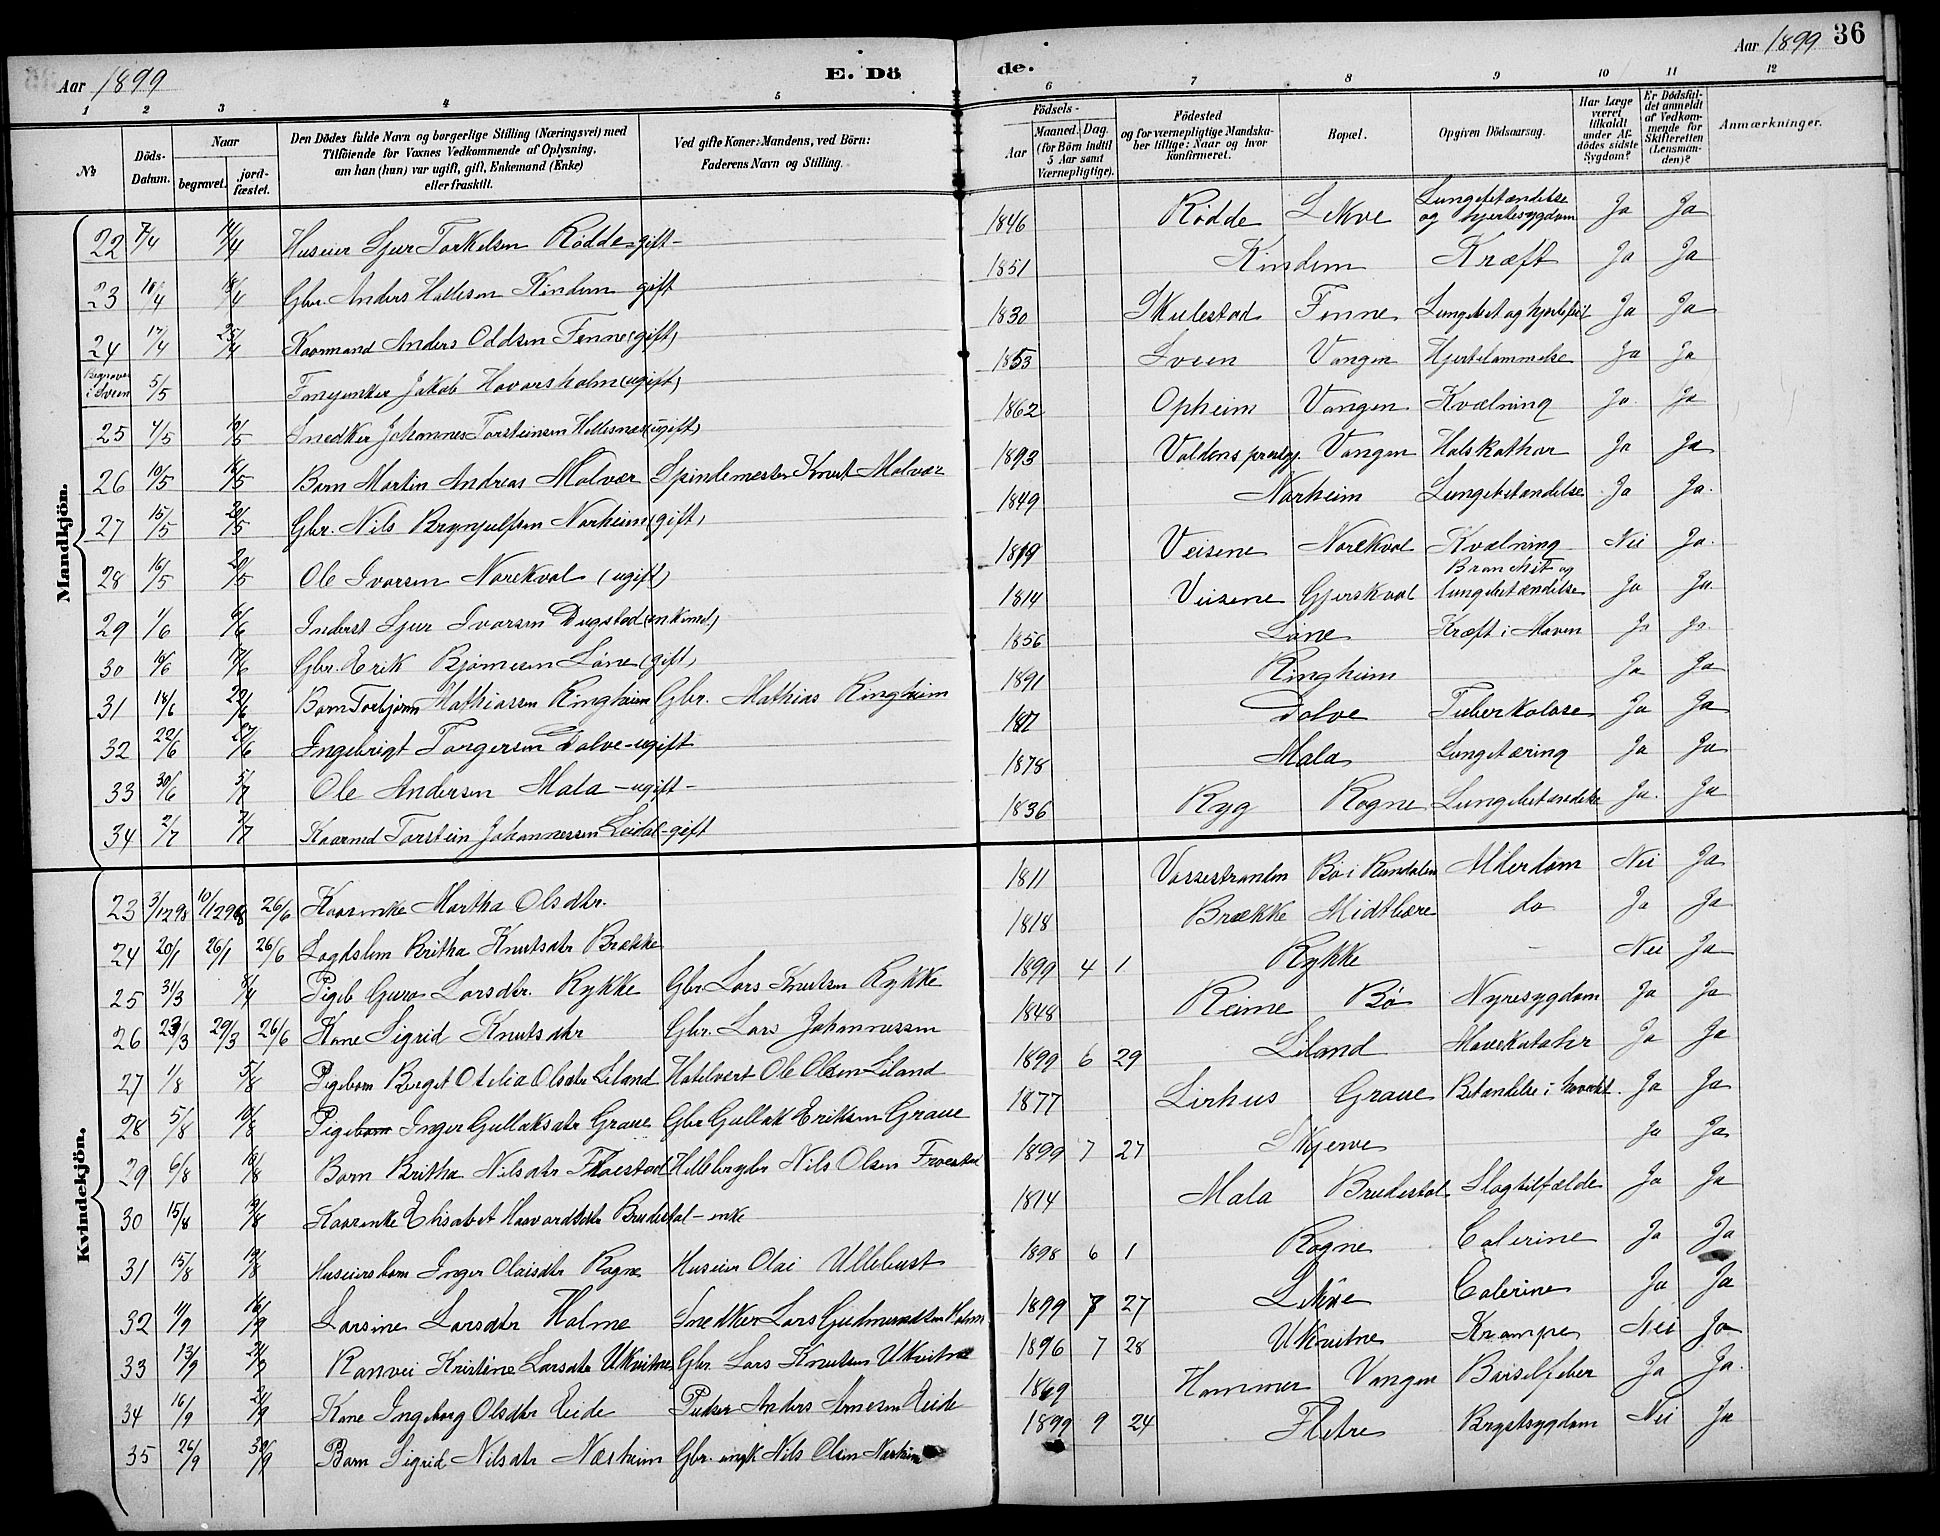 Aar 1899
E. Dö
de.
Aar 1899 36
1 2 3 4 5 6 7 8 9 10 11 12
№
Döds-Datum.
Naar
begravet.
jord-fæstet.
Den Dödes fulde Navn og borgerlige Stilling (Næringsvei) med
Tilföiende for Voxnes Vedkommende af Oplysning,
om han (hun) var ugift, gift, Enkemand (Enke)
eller fraskilt.
Ved gifte Koner: Mandens, ved Börn:
Faderens Navn og Stilling.
Födsels-
Aar
Maaned. Dag.
(for Börn indtil
5 Aar samt
Værnepligtige).
Födested
og for værnepligtige Mandska-
ber tillige: Naar og hvor
konfirmeret.
Bopæl.
Opgiven Dödsaarsag.
Har Læge
været
tilkaldt
under Af-
dödes sidste
Sygdom?
Er Dödsfal-
det anmeldt
af Vedkom-
mende for
Skifteretten
(Lensman-
den)?
Anmærkninger.
Mandkjön.
22 7/4 14/4 Huseier Sjur Torkelsen Rödde gift- 1846 Rödde Lekve Lungebetændelse og hjertesygdom Ja Ja
23 10/4 18/4 Gbr. Anders Hallesen Kindem gift 1851 Kindem Kræft Ja Ja
24 17/4 25/4 Kaarmand Anders Oddsen Fenne (gift) 1830 Skulestad Fenne Lungebet og hjertefeil Ja Ja
Begravet i Sveen 5/5 Jakob Havarsholm (ugift) 1853 Sveen Vangen Hjertelammelse Ja Ja
25 4/5 10/5 Snedker Johannes Torsteinsen Hellesnes (ugift) 1862 Opheim Vangen Kvælning Ja Ja
26 10/5 16/5 Barn Martin Andreas Molvær Spindemester Knut Molvær 1893 Voldens præstg. Vangen Halskathar Ja Ja
27 15/5 20/5 Gbr. Nils Brynjulfsen Norheim (gift) 1849 Norheim Lungebetændelse Ja Ja
28 16/5 20/5 Ole Ivarsen Norekval (ugift) 1819 Veisene Norekval Kvælning Nei Ja
29 1/6 6/6 Inderst Sjur Ivarsen Dugstad (enkemd) 1814 Veisene Gjerskval Bronchit og lungebetændelse Ja Ja
30 10/6 17/6 Gbr. Erik Bjørnesen Löne (gift) 1856 Löne Kræft i Maven Ja Ja
31 18/6 22/6 Barn Torbjørn Mathiassen Ringheim Gbr. Mathias Ringheim 1891 Ringheim Ja Ja
32 22/6 27/6 Ingebrigt Torgersen Dolve - ugift Dolve Tuberkolose Ja Ja
33 30/6 5/7 Ole Andersen Mala - ugift - 1878 Mala Lungetæring Ja Ja
34 2/7 7/7 Kaarmd Torstein Johannessen Leidal - gift 1836 Ryg Rogne Lungebetændelse Ja Ja
Kvindekjön.
23 3/12 98 10/12 98 26/6 Kaarenke Martha Olsdtr. 1811 Vossestranden Bö i Rundalen Alderdom Nei Ja
24 20/1 26/1 26/6 Logdslem Britha Knutsdtr Brække 1818 Brække Midtbære do Ja Ja
25 31/3 8/4 Pigeb Guro Larsdtr. Rykke Gbr Lars Knutsen Rykke 1899 4 1 Rykke - Nei Ja
26 23/3 29/3 26/6 Kone Sigrid Knutsdtr Gbr. Lars Johannessen 1848 Reime Bö Nyresygdom Ja Ja
27 1/8 5/8 Pigebarn Berget Otelia Olsdtr Liland Hotelvert Ole Olsen Liland 1899 6 29 Liland Mavekatahr Ja Ja
28 5/8 10/8 Pige Inger Gullaksdtr Graue Gbr Gullak Eriksen Graue 1877 Lirhus Graue Betændelse i hovedet Ja Ja
29 6/8 10/8 Barn Britha Nilsdtr Nils Olsen 1899 7 27 Skjerve Ja Ja
30 15/8 19/8 Kaarenke Elisabet Haavardsdtr Brudestal - enke 1814 Mala Brudestal Slagtilfælde Ja Ja
31 15/8 19/8 Huseiersbarn Inger Olaisdtr Rogne Huseier Olai Ullebust 1898 6 1 Rogne Colerine Ja Ja
32 11/9 16/9 Larsine Larsdtr Holme Snedker Lars Gudmundsen Holm 1899 7 27 Lekve Colerine Ja Ja
33 13/9 21/9 Ranvei Kristine Larsdtr Ukvitne Gbr. Lars Knutsen Ukvitne 1896 7 28 Ukvitne Krampe Nei Ja
34 16/9 21/9 Kone Ingeborg Olsdtr Eide Pudser Anders Arnesen Eide 1869 Hommer Vangen Barselfeber Ja Ja
35 26/9 30/9 Barn Sigrid Nilsdtr Norheim Gbr. Nils Olsen Norheim 1899 9 24 Fletre Brystsygdom Nei Ja